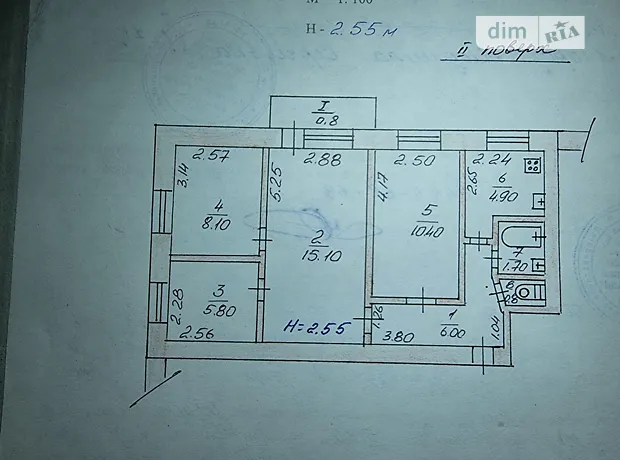 М 1:100
H - 2.55 м
dim RIA
II поверх
I
0.8
2.57
2.88
2.50
2.24
3.14
5.25
4.17
2.65
6
4.90
4
8.10
5
10.40
2
15.10
7
1.70
3
5.80
8
2.28
2.56
H = 2.55
1.26
3.80
1
6.00
1.04